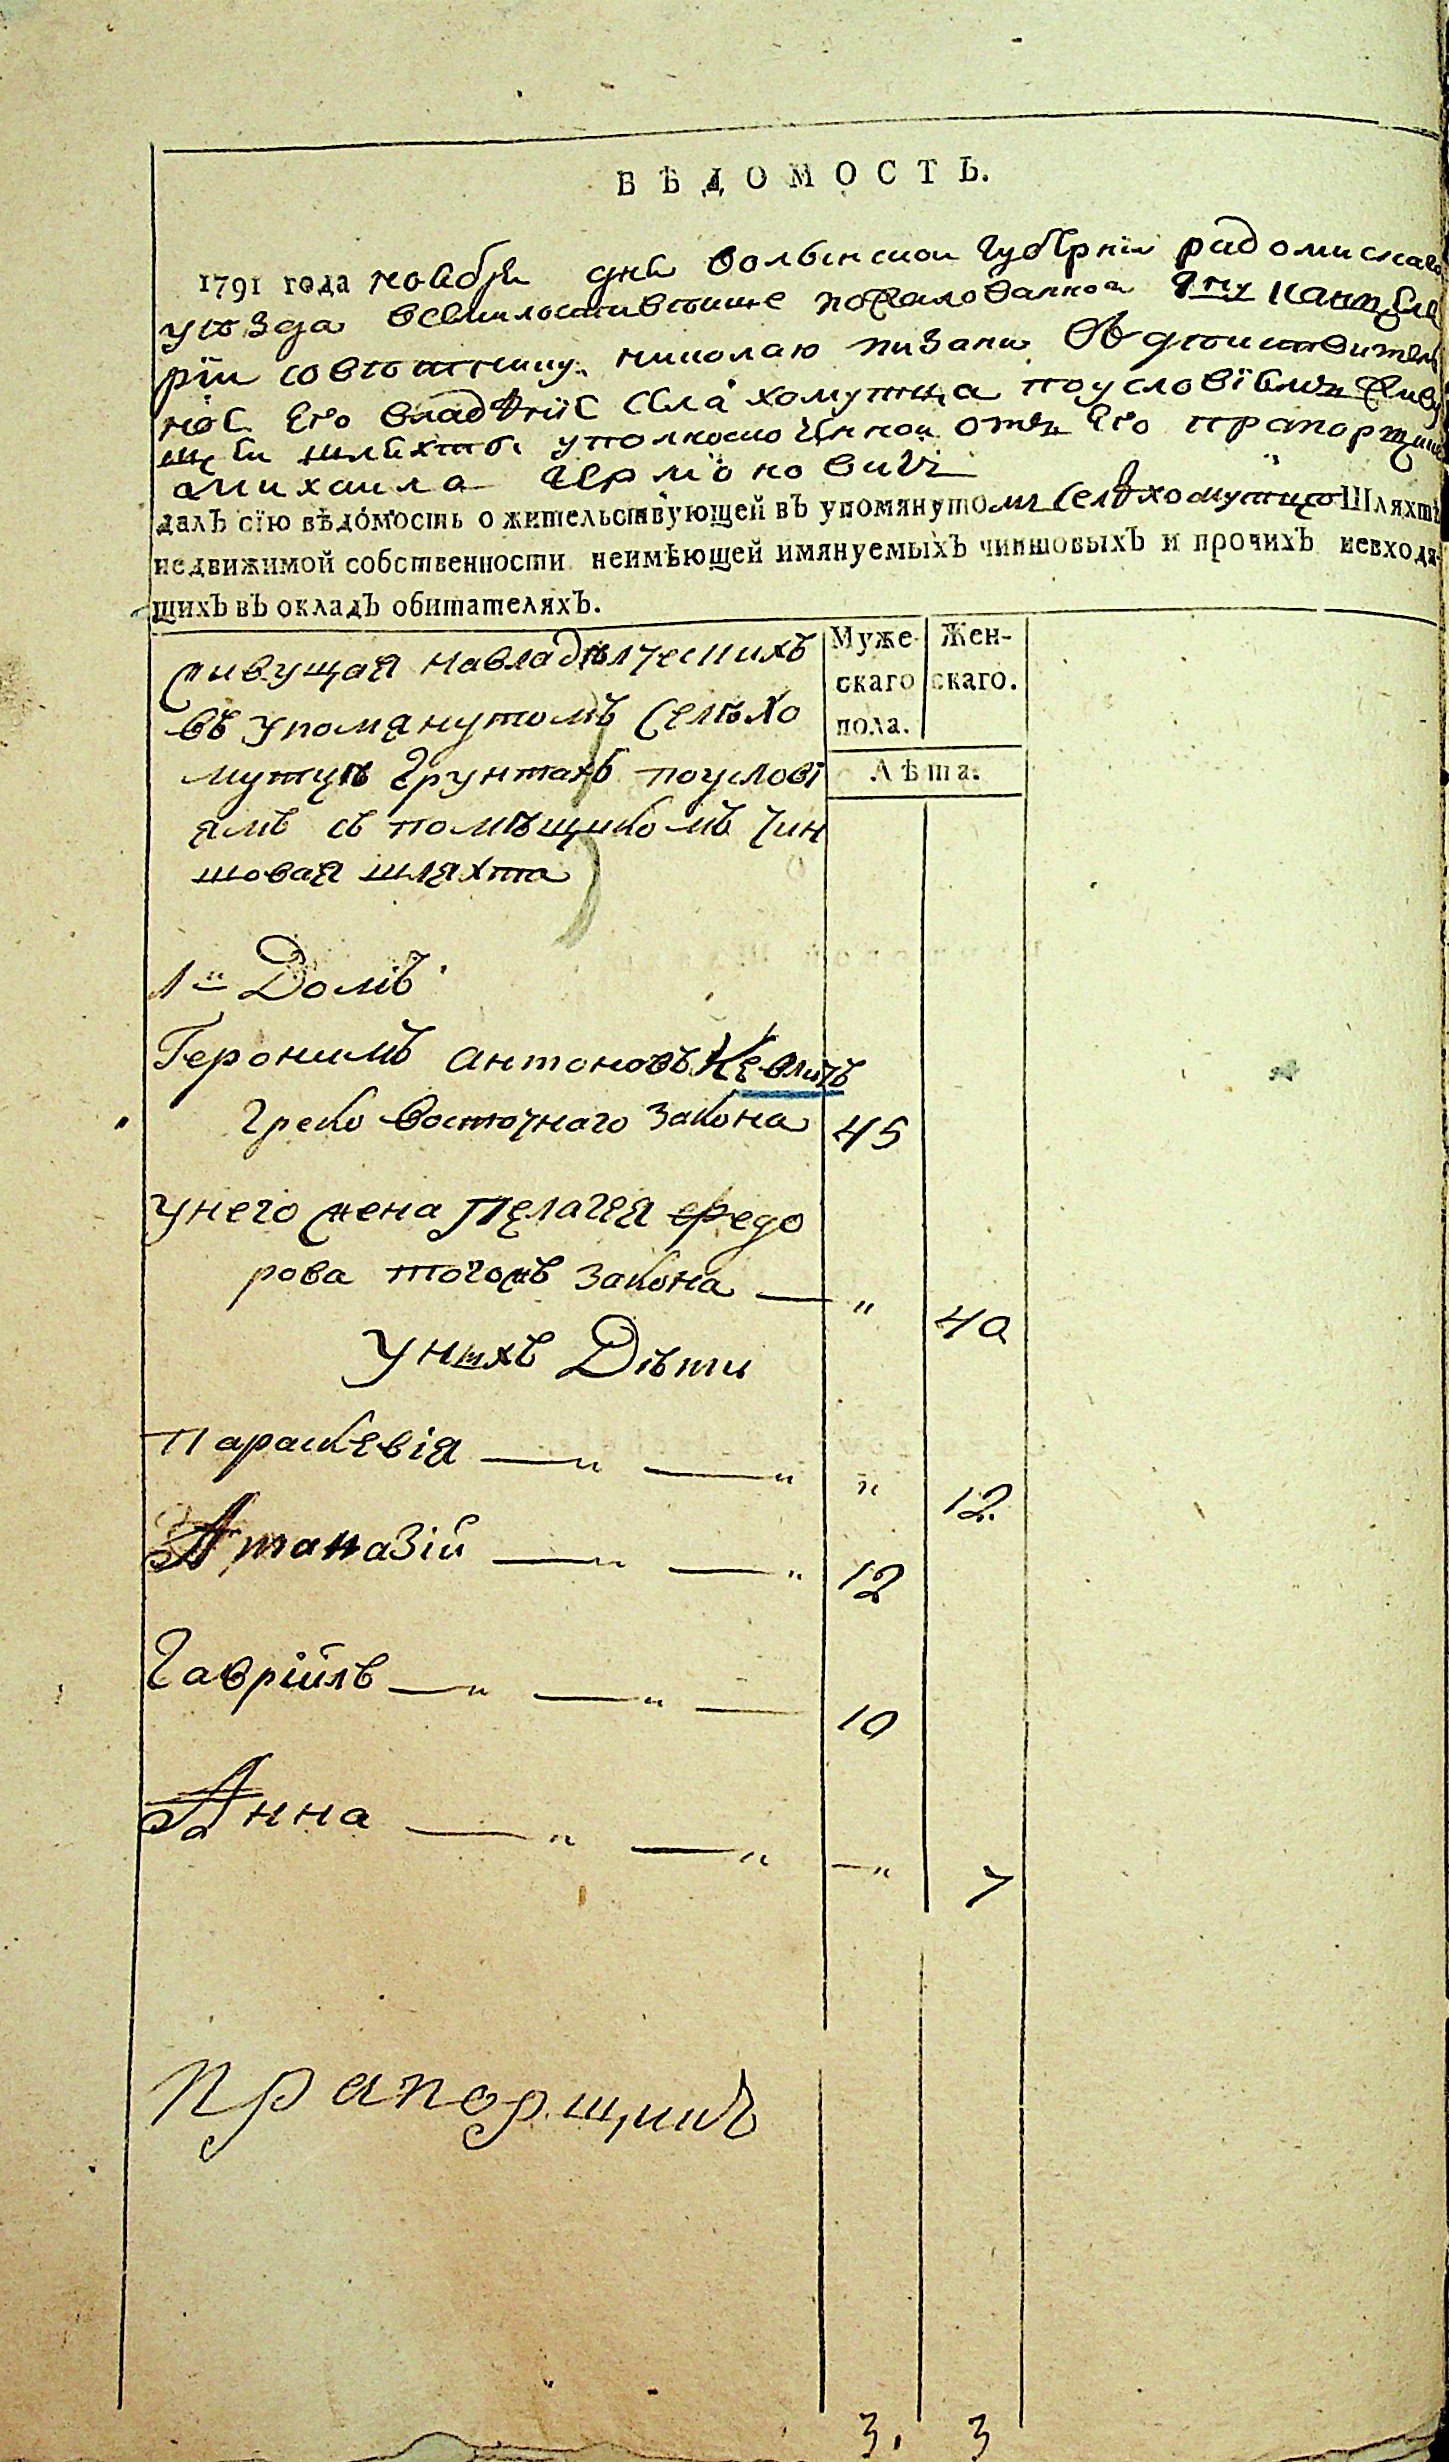 ВѢДОМОСТЬ.
1791 года ноября дня волынской губернїи радомислскаго
уѣзда всемилостивѣише пожалованной канцеля
рїи совѣтнику николаю пизани въ дѣиствител
ное его владѣнїе села хомутца поусловїямъ живу
щей шляхты уполномоченной отъ его прапорщик
а михаила Чермїоновичь
далъ сїю вѣдомость о жительствующей въ упомянутомъ селѣхомутцѣ Шляхтѣ
недвижимой собственности неимѣющей имянуемыхъ чиншовыхъ и прочихъ невходя-
щихъ въ окладъ обитателяхъ.
Муже- Жен-
скаго скаго.
пола.
Лѣта.
живущая навладѣлческихъ
въ упомянутомъ селѣхо
мутцѣ грунтахъ поуслові
ямъ съ помѣщикомъ чин
шовая шляхта
1й Домъ
Геронимъ антоновъ Кевличъ
греко восточнаго закона 45
унего жена Пелагея федо
рова тогожъ закона — " 40
унихъ Дѣти
параскевія — " — " " 12.
Атаназій — " — " 12
Гаврійлъ — " — " — 10
Анна — " — " — " 7
прапорщикъ
3. 3